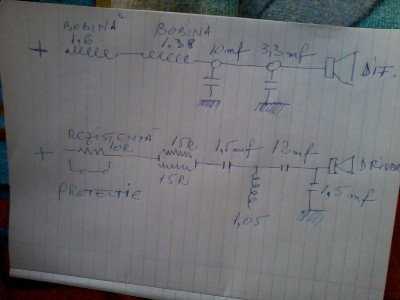 + BOBINA BOBINA
1,6 1,38 10mf 3,3mf
DIF.
+ REZISTENTA 15R 1,5mf 12mf
10R DRIVER
PROTECTIE 15R 1,5mf
1,05